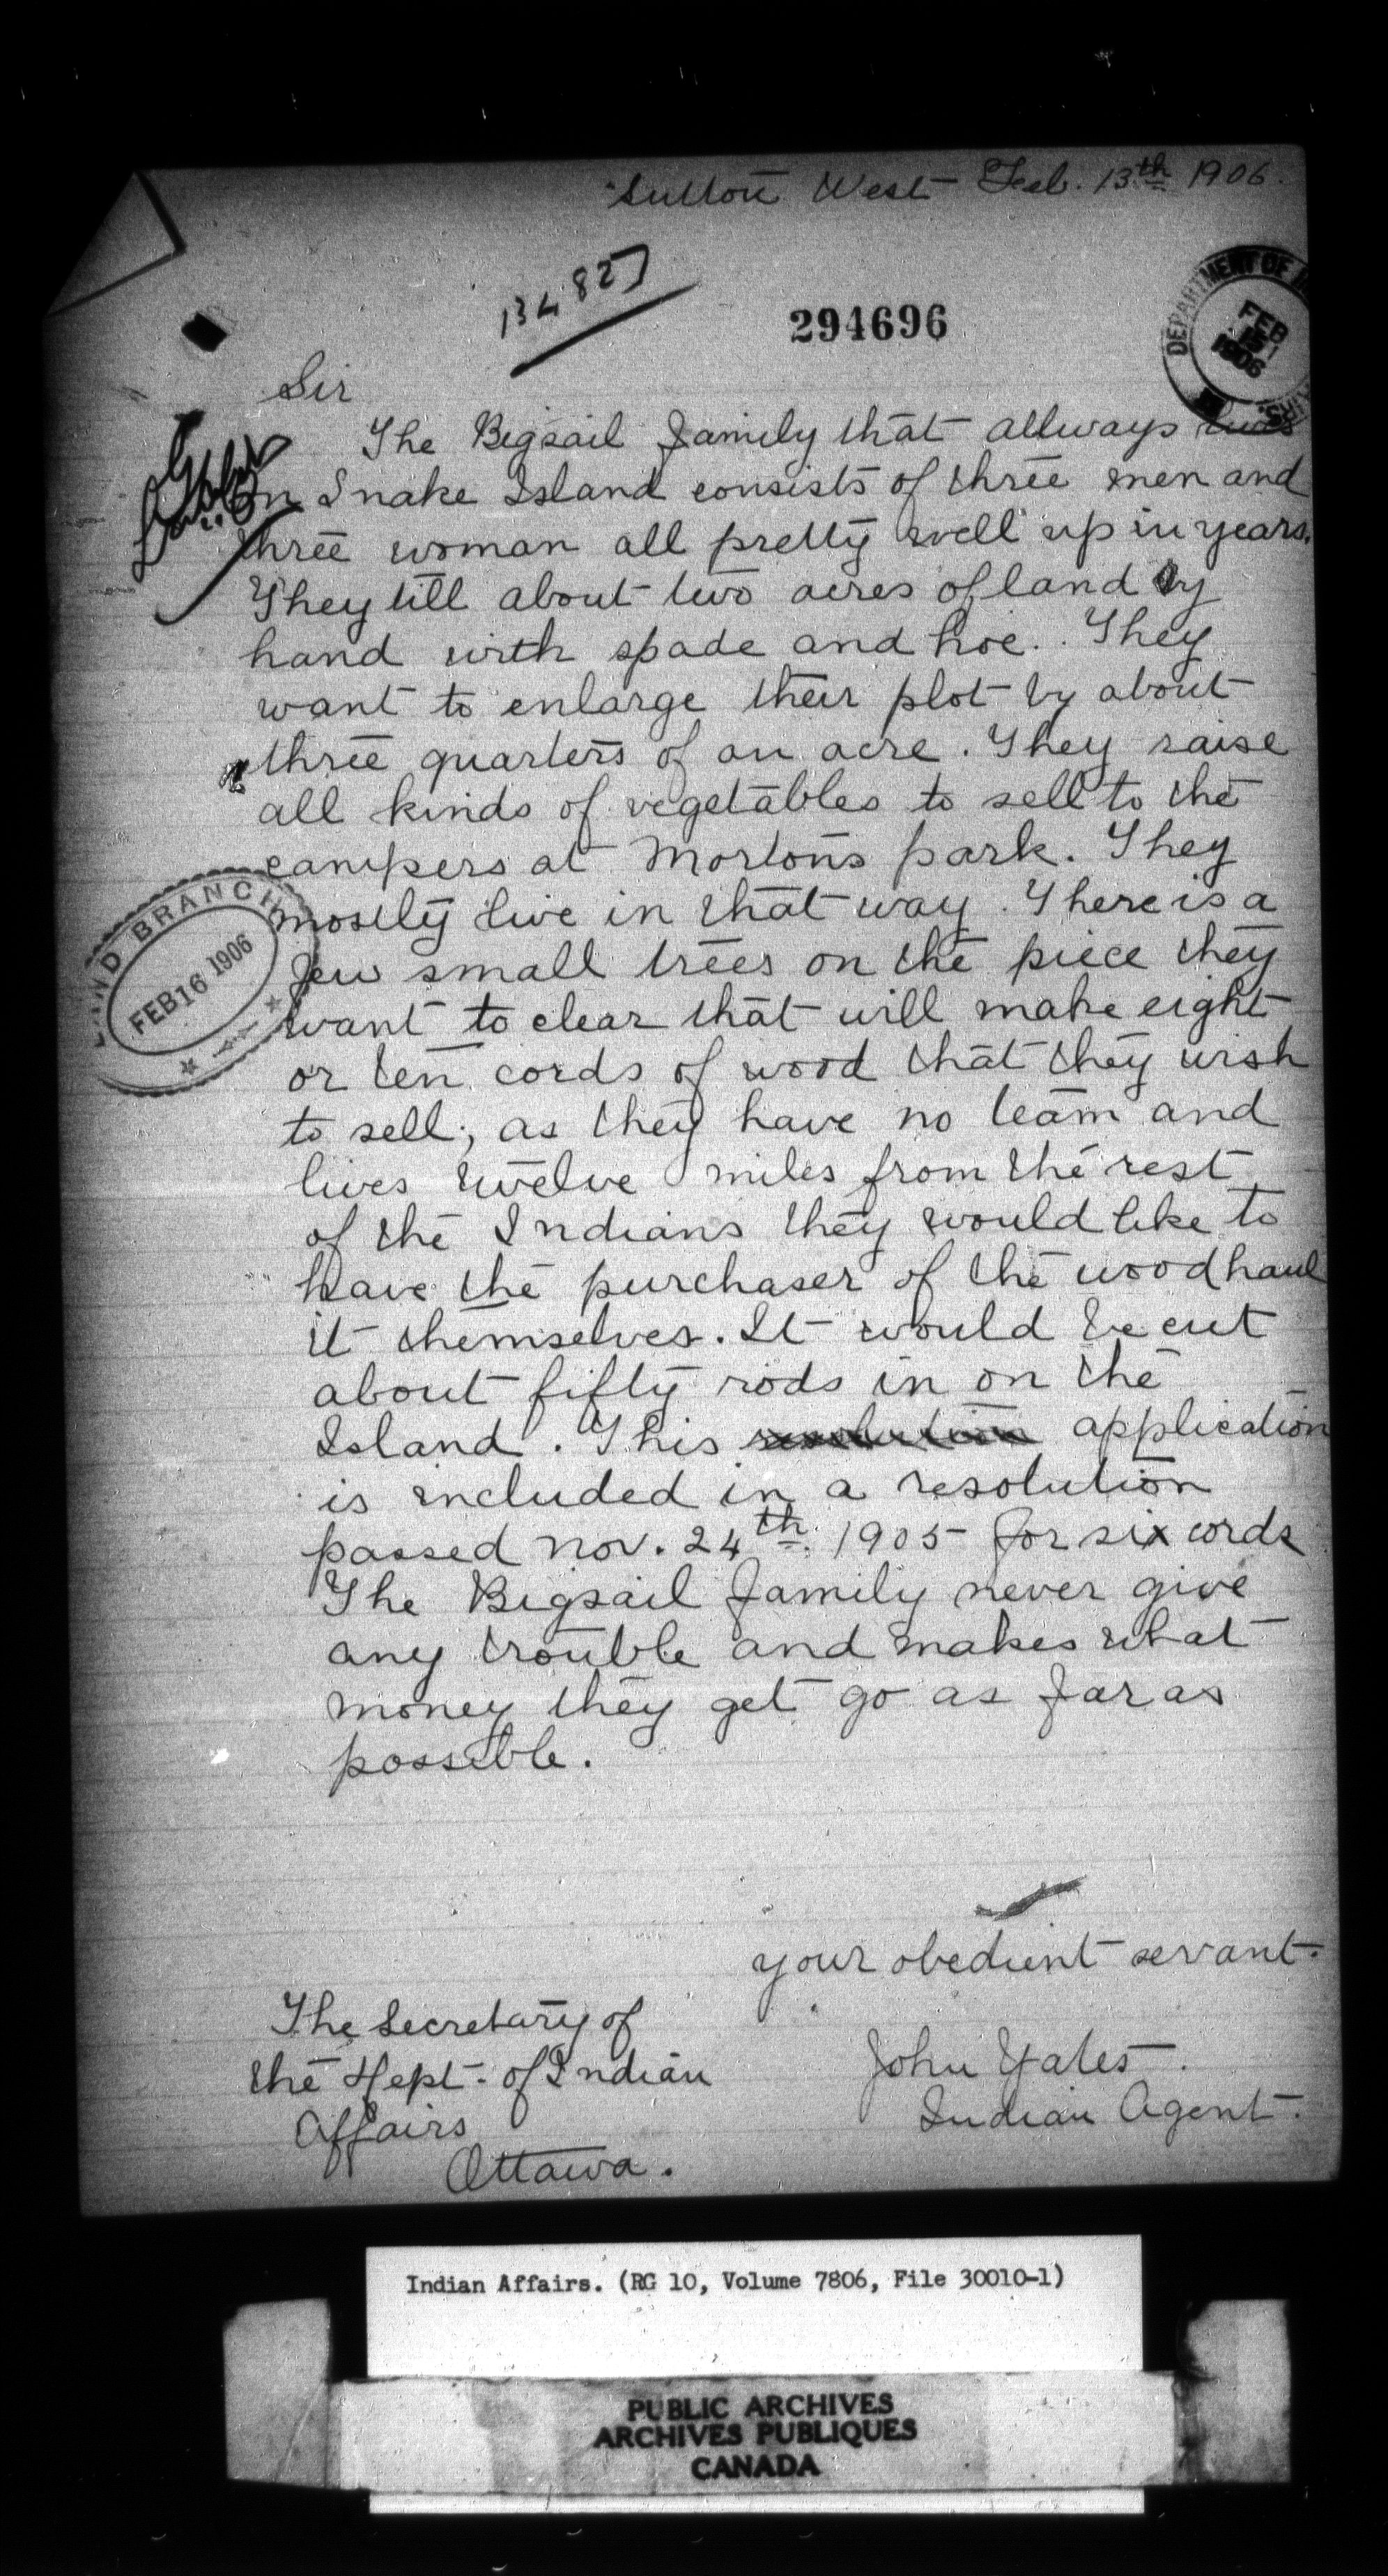 Sutton West Feb. 13th 1906.
134827
294696
DEPARTMENT OF
FEB 15 1906
Sir
The Bigsail family that allways lives
on Snake Island consists of three men and
three woman all pretty well up in years.
They till about two acres of land by
hand with spade and hoe. They
want to enlarge their plot by about
three quarters of an acre. They raise
all kinds of vegetables to sell to the
campers at Mortons park. They
mostly live in that way. There is a
few small trees on the piece they
want to clear that will make eight
or ten cords of wood that they wish
to sell, as they have no team and
lives twelve miles from the rest
of the Indians they would like to
have the purchaser of the wood haul
it themselves. It would be cut
about fifty rods in on the
Island. This resolution application
is included in a resolution
passed Nov. 24th 1905 for six cords
The Bigsail family never give
any trouble and makes what
money they get go as far as
possible.
LAND BRANCH
FEB 16 1906
your obedient servant.
John Yates.
Indian Agent.
The Secretary of
the Dept. of Indian
Affairs
Ottawa.
Indian Affairs. (RG 10, Volume 7806, File 30010-1)
PUBLIC ARCHIVES
ARCHIVES PUBLIQUES
CANADA